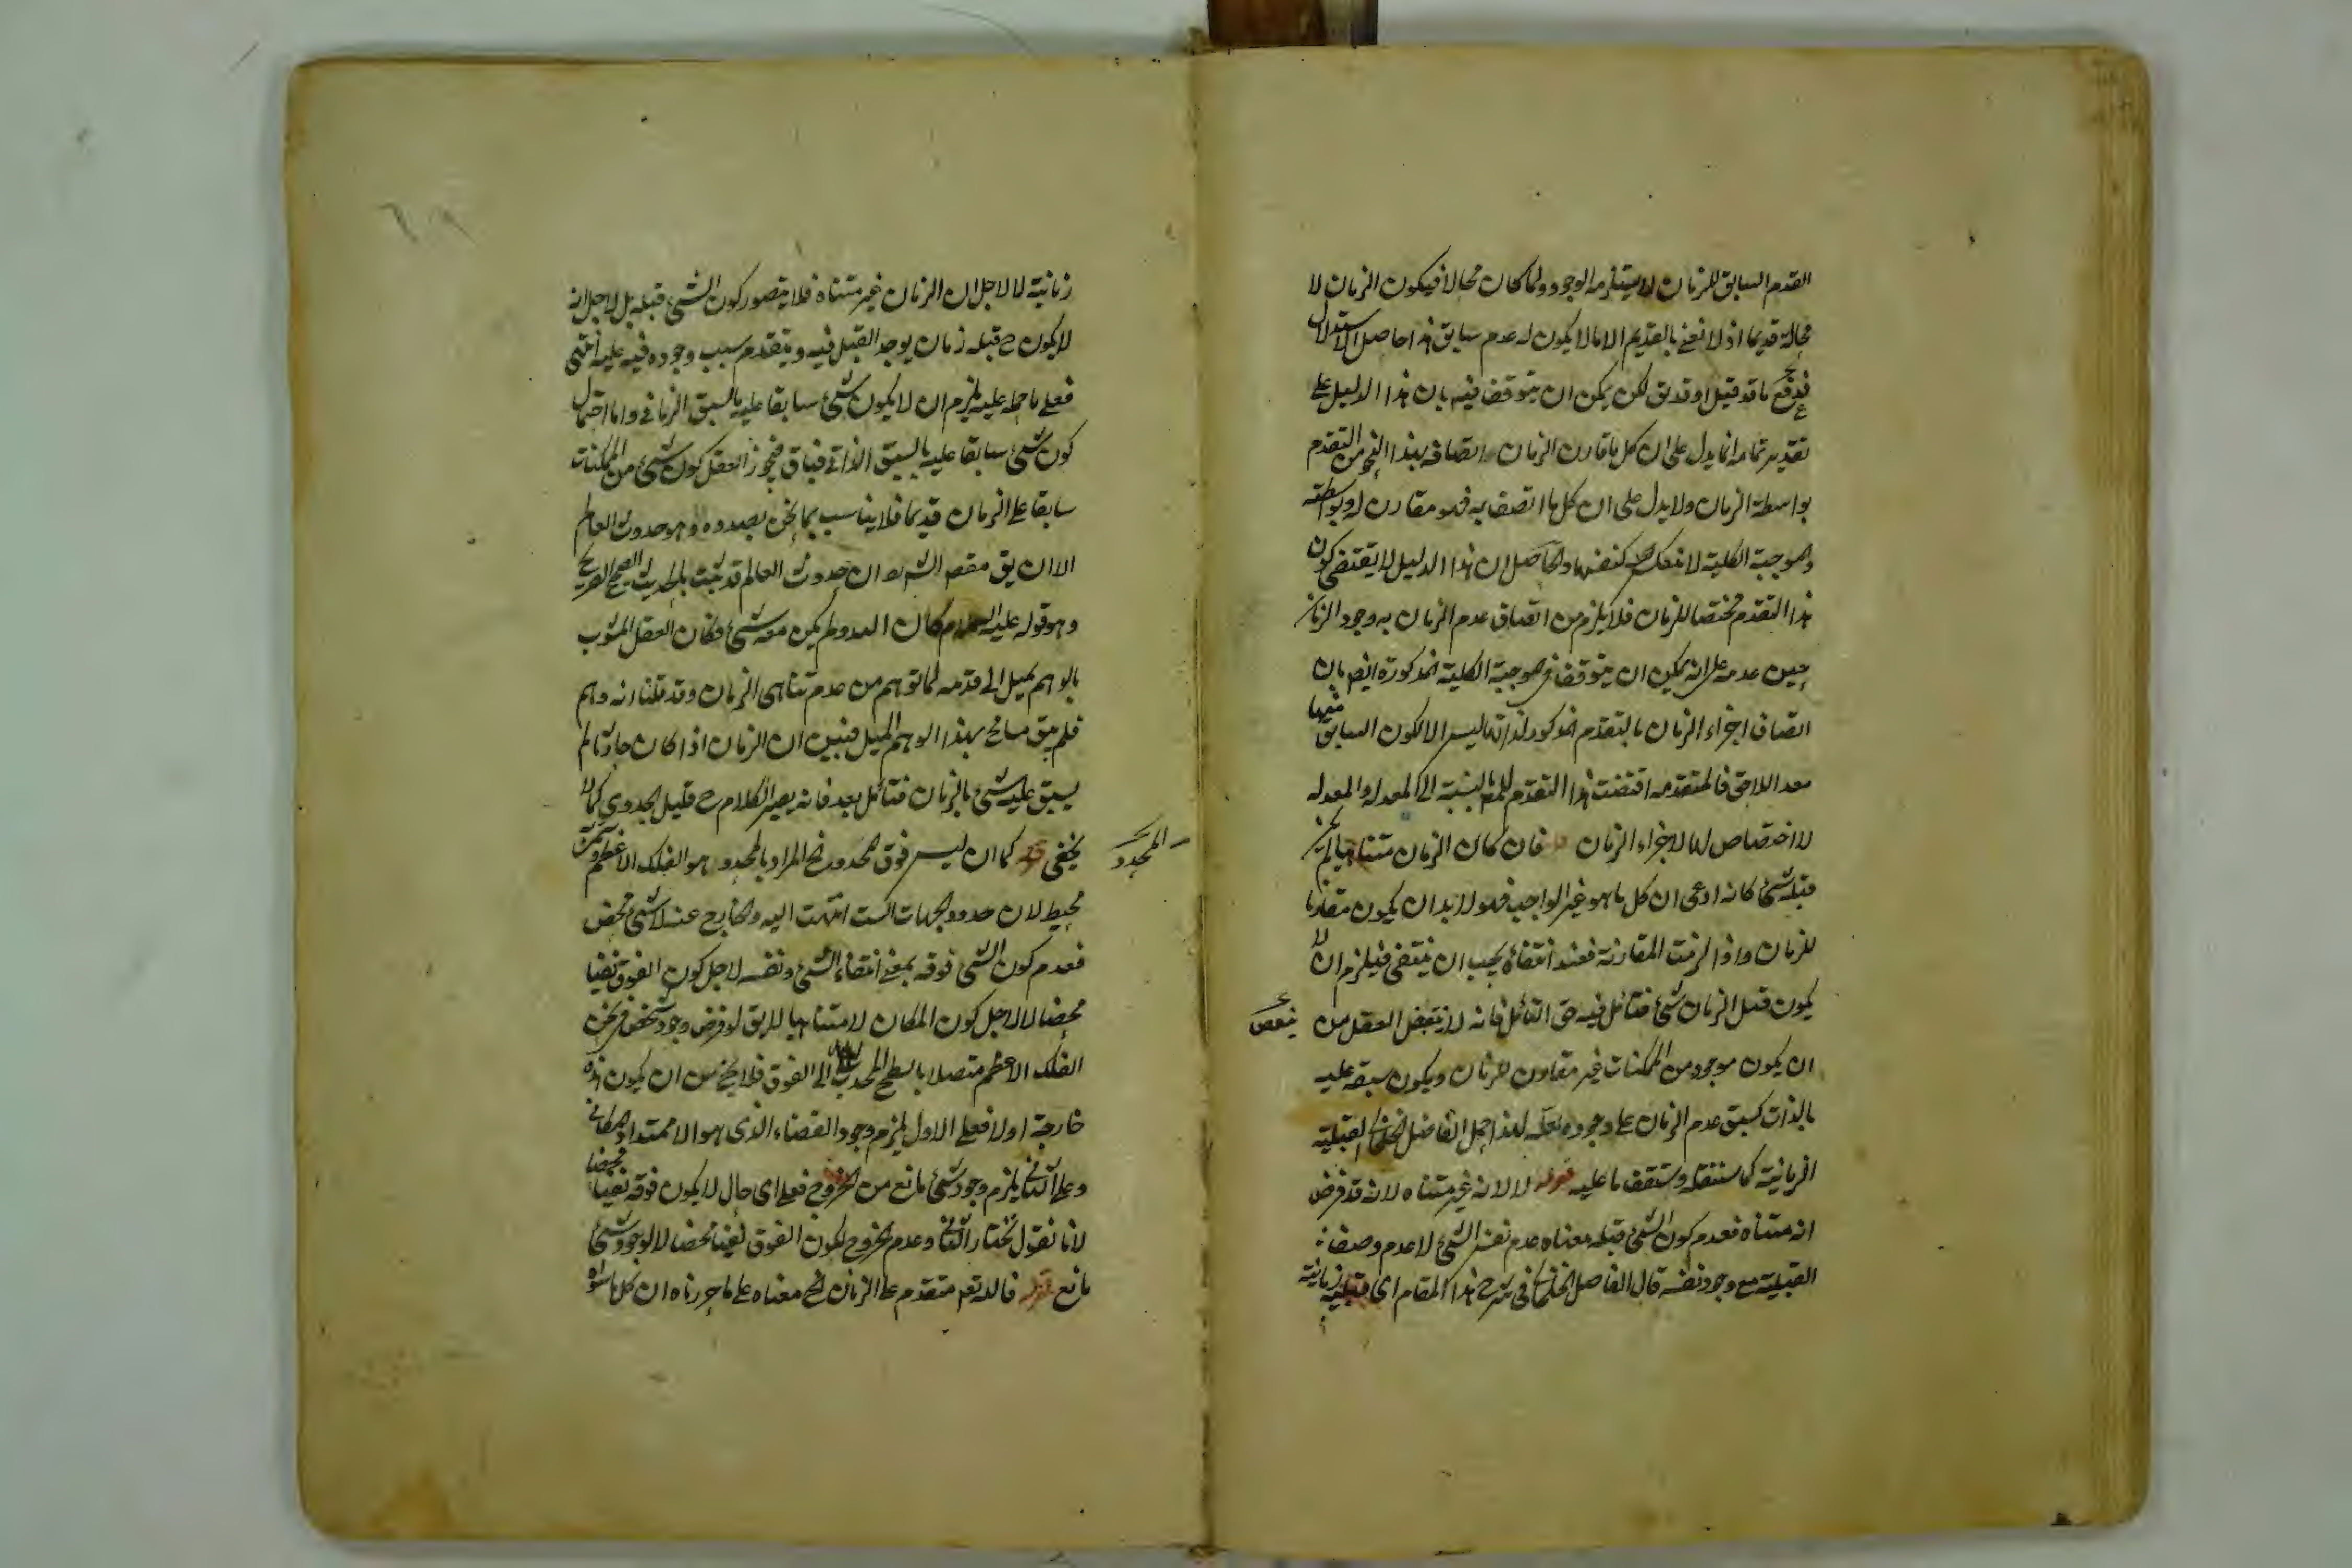 العدم السابق للزمان لا يستلزم الوجود ولما كان محالا فيكون الزمان لا
محالة قديما اذ لا نعني بالقديم الا ما لا يكون له عدم سابق هذا حاصل الاستدلال
ما قد قيل او قد يق لكن يمكن ان يتوقف فيه بان هذا الدليل على
تقدير تمامه انما يدل على ان كل ما قارن الزمان اتصافه بهذا النحو من التقدم
بواسطة الزمان ولا يدل على ان كل ما اتصف به فهو مقارن له وبواسطته
والموجبة الكلية لا تنعكس كنفسها والحاصل ان هذا الدليل لا يقتضي كون
هذا التقدم مختصا للزمان فلا يلزم من اتصاف عدم الزمان به وجود الزمان
حين عدمه على انه يمكن ان يتوقف في الموجبة الكلية المذكورة ايضا بان
اتصاف اجزاء الزمان بالتقدم المذكور لذاتها ليس الا لكون السابق منها
معد اللاحق فالمتقدمة اقتضت هذا التقدم بالنسبة الى المعد له والمعد له
لا اختصاص لها لاجزاء الزمان فان كان الزمان متناهيا لم يكن
قبله شئ كانه ادعى ان كل ما هو غير الواجب فهو لا بد ان يكون مقارنا
للزمان واذا لزمت المقارنة فعند انتفائه يجب ان ينتفي فيلزم ان لا
يكون قبل الزمان شئ فتأمل فيه حق التأمل فانه لا ينقبض العقل من
ان يكون موجود من الممكنات غير مقارن للزمان ويكون سبقه عليه
بالذات كسبق عدم الزمان على وجوده لعله لهذا حمل الفاضل القبلية
الزمانية كما ستنقله وستقف ما عليه قوله لا لانه غير متناه لانه قد فرض
انه متناه فعدم كون الشئ قبله معناه عدم نفس الشئ لا عدم وصف
القبلية مع وجود نفسه قال الفاضل في شرح هذا المقام اى قبلية زمانية
زمانية لا لاجل ان الزمان غير متناه فلا يتصور كون الشئ قبله بل لاجل انه
لا يكون ح قبله زمان يوجد القبل فيه ويتقدم بسبب وجوده فيه عليه انتهى
فعلى ما حمله عليه يلزم ان لا يكون شئ سابقا عليه بالسبق الزماني واما احتمال
كون شئ سابقا عليه بالسبق الذاتي فباق فيجوز العقل كون شئ من الممكنات
سابقا على الزمان قديما فلا يناسب بما نحن بصدده وهو حدوث العالم
الا ان يق مقصد الش هو ان حدوث العالم قد ثبت بالحديث الصحيح الصريح
وهو قوله عليه السلام كان الله ولم يكن معه شئ وكان العقل المشوب
بالوهم يميل الى قدمه لما توهم من عدم تناهى الزمان وقد قلنا انه وهم
فلم يبق سانح بهذا الوهم الميل فتبين ان الزمان اذا كان حادثا لم
يسبق عليه شئ بالزمان فتأمل بعد فانه يصير الكلام ح قليل الجدوى كما لا
يخفى قوله كما ان ليس فوق المحدد الخ المراد بالمحدد هو الفلك الاعظم
محيط لان حدود الجهات الست انتهت اليه والخارج عنه لا شئ محض
فعدم كون الشئ فوقه بمعنى انتفاء الشئ ونفسه لاجل كون الفوق نفيا
محضا لا لاجل كون المكان لا متناهيا لا يق لو فرض وجود شخص في
الفلك الاعظم متصلا بالسطح المحدب الى الفوق فلا يخ من ان يكون يده
خارجة او لا فعلى الاول يلزم وجود الفضاء الذى هو الامتداد المكاني
وعلى الثاني يلزم وجود شئ مانع من الخروج فعلى اى حال لا يكون فوقه نفيا محضا
لانا نقول نختار الثاني وعدم الخروج لكون الفوق نفيا محضا لا لوجود شئ
مانع قوله فالله تعم متقدم على الزمان الخ معناه على ما حررناه ان كل ما سواه